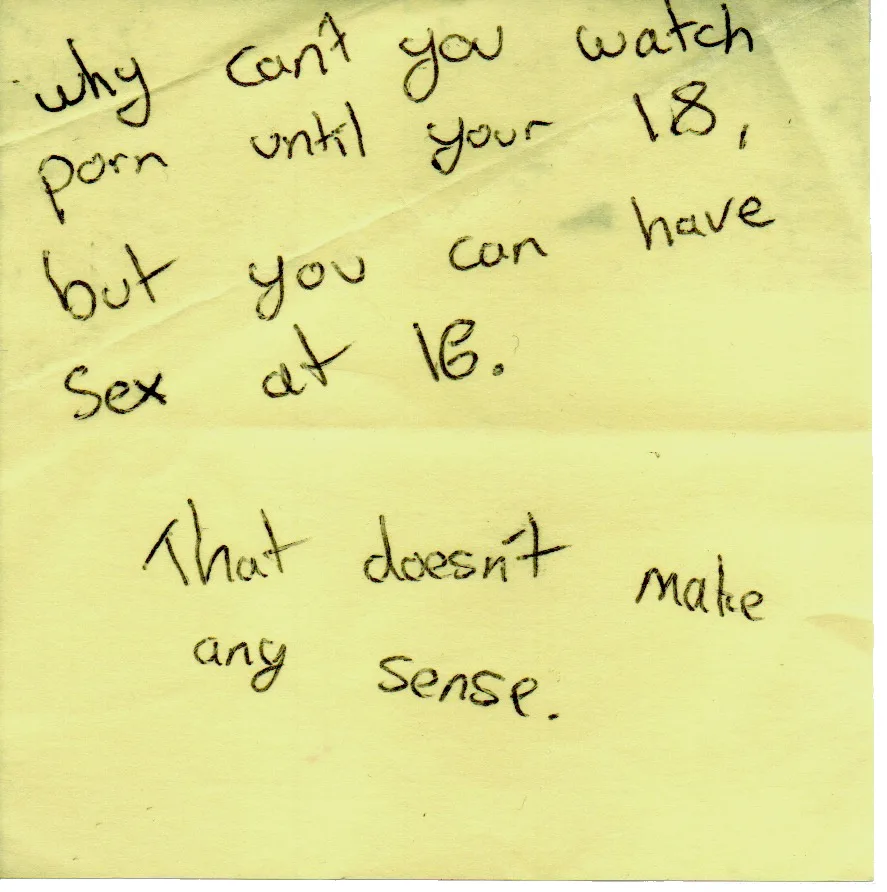 why can't you watch
porn until your 18,
but you can have
Sex at 16.
That doesn't make
any sense.